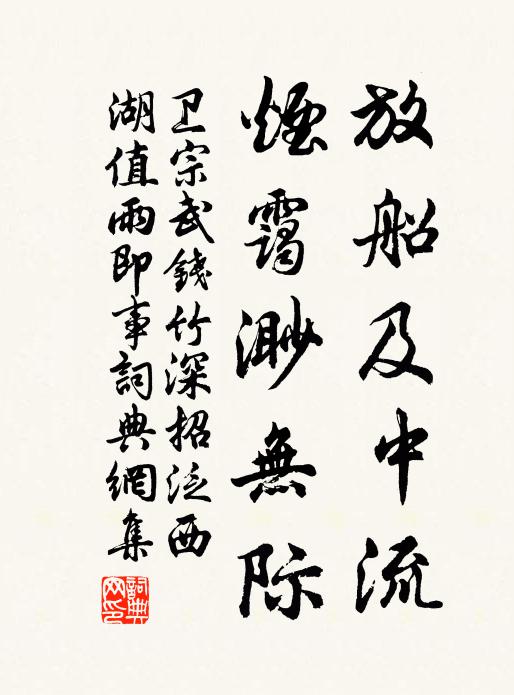 放船及中流
煙靄渺無际
卫宗武錢竹深招泛西
湖值雨即事詞典網集
詞典
网印